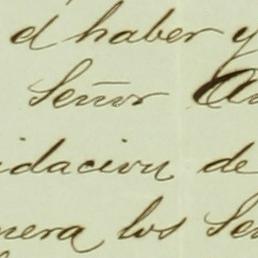 el haber y
Señor
idacion de
nera los Se